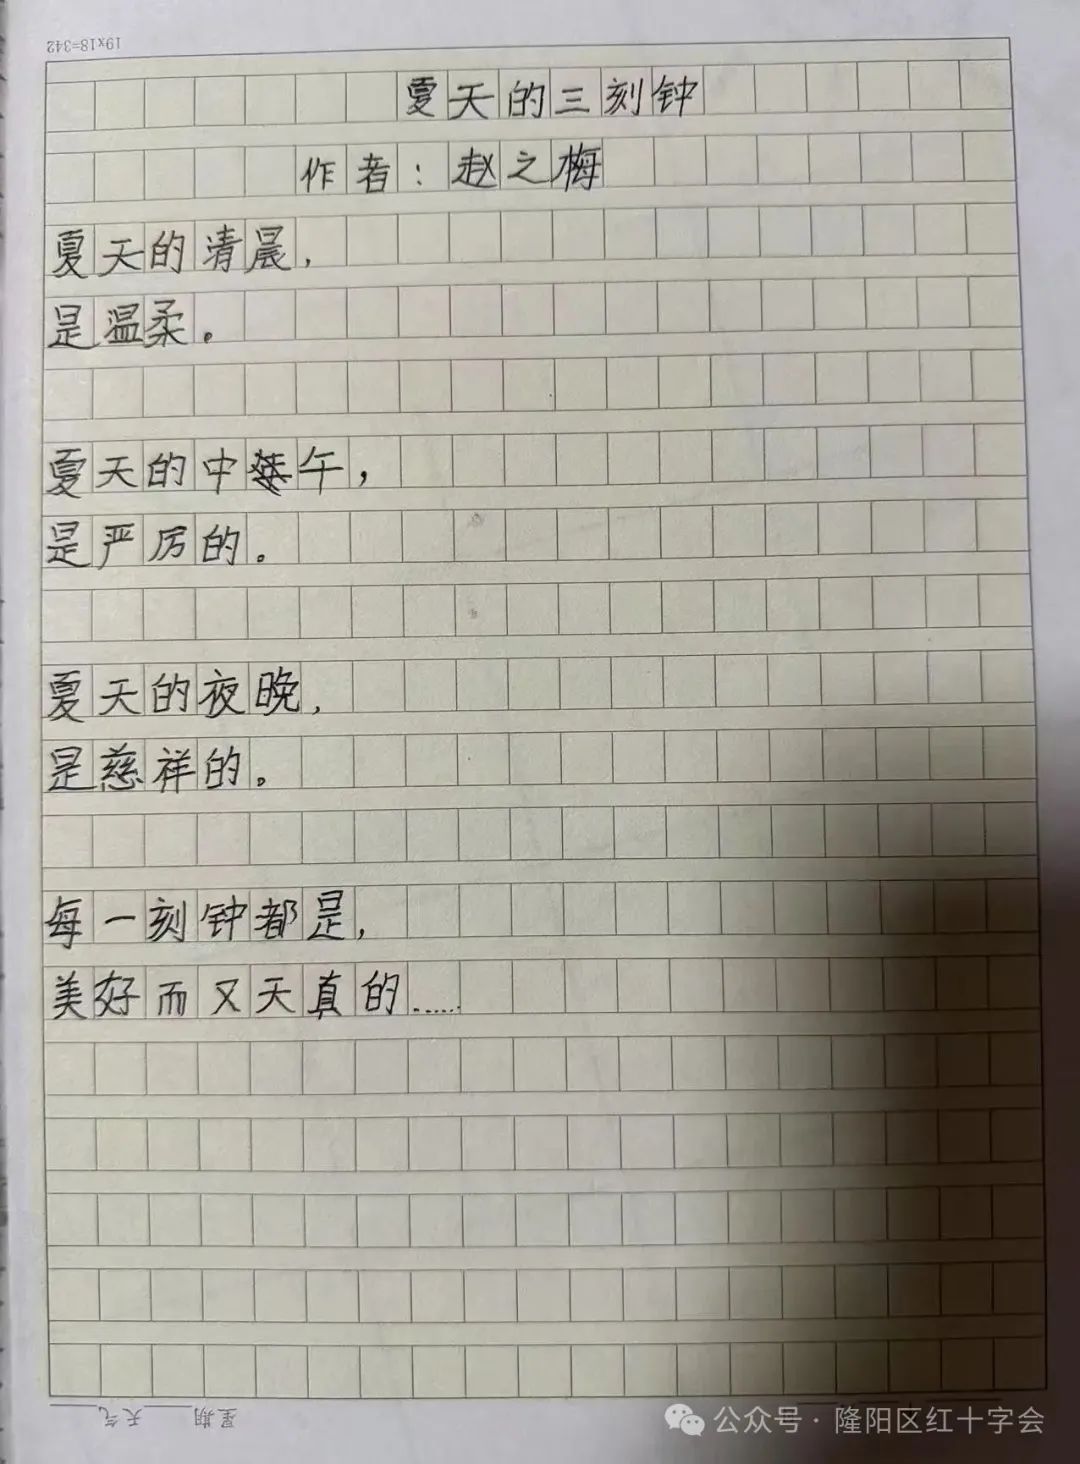 19x18=342
夏天的三刻钟
作者：赵之梅
夏天的清晨，
是温柔。
夏天的中午，
是严厉的。
夏天的夜晚，
是慈祥的。
每一刻钟都是，
美好而又天真的……
星期 天气
公众号·隆阳区红十字会